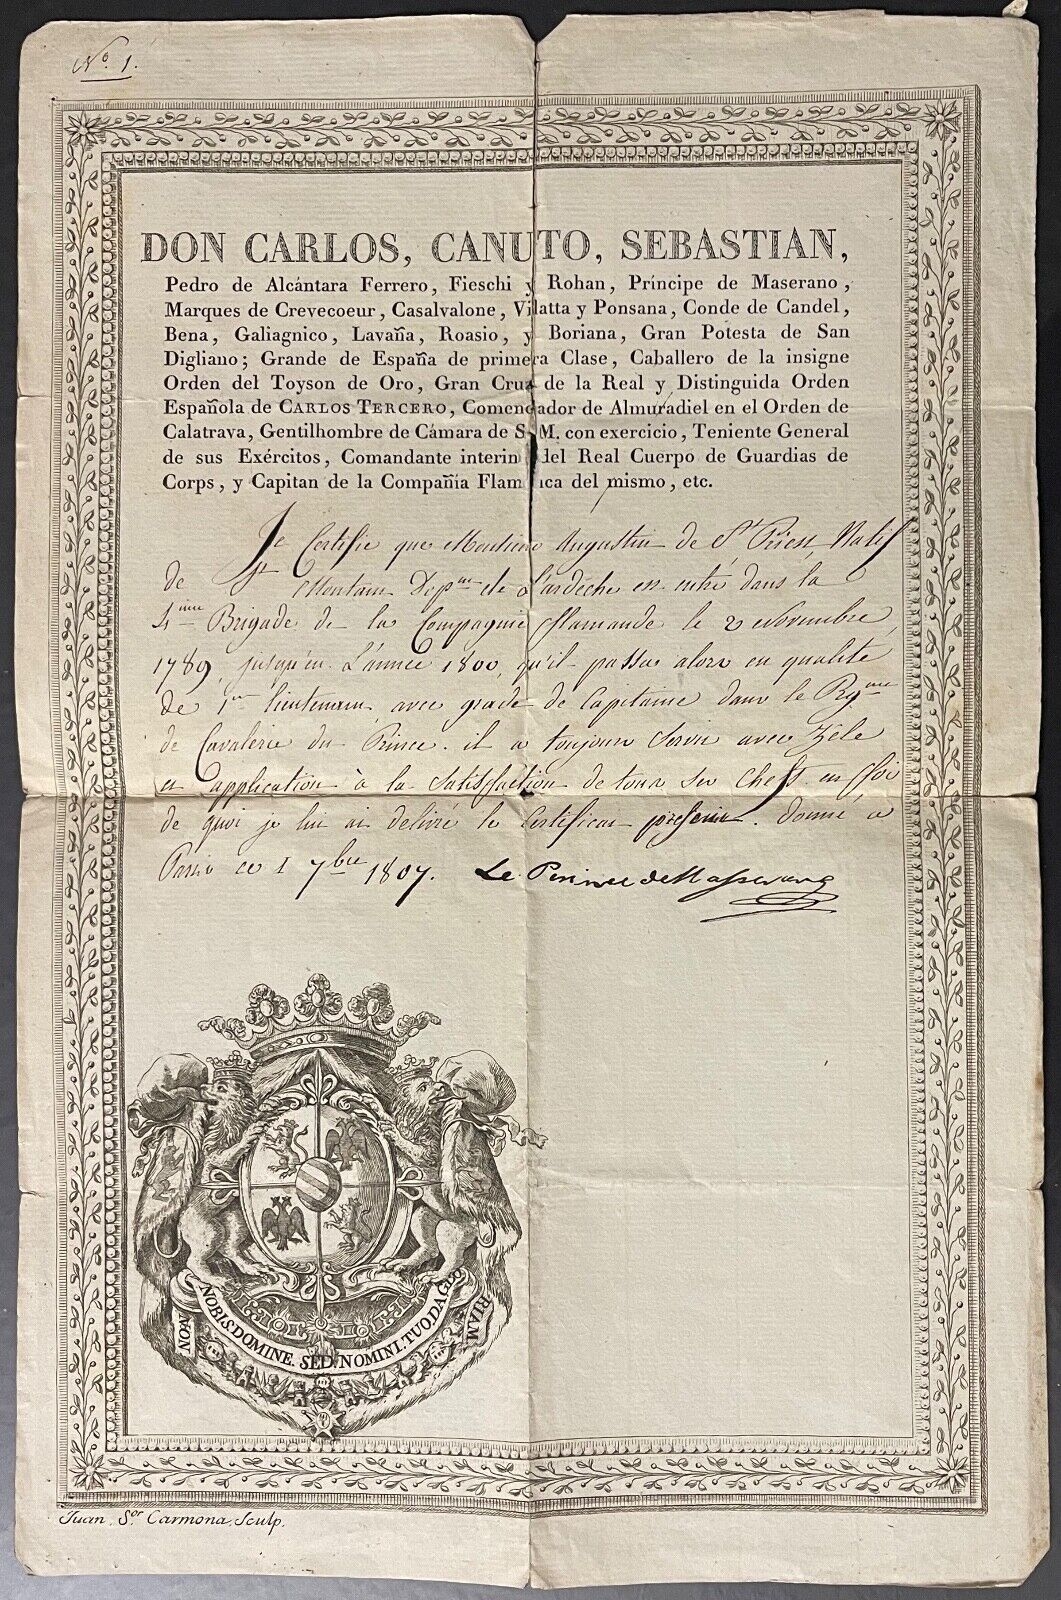 Nº 1.
DON CARLOS, CANUTO, SEBASTIAN,
Pedro de Alcántara Ferrero, Fieschi y Rohan, Príncipe de Maserano,
Marques de Crevecoeur, Casalvalone, Vilatta y Ponsana, Conde de Candel,
Bena, Galiagnico, Lavaña, Roasio, y Boriana, Gran Potesta de San
Digliano; Grande de España de primera Clase, Caballero de la insigne
Orden del Toyson de Oro, Gran Cruz de la Real y Distinguida Orden
Española de CARLOS TERCERO, Comendador de Almuradiel en el Orden de
Calatrava, Gentilhombre de Cámara de S. M. con exercicio, Teniente General
de sus Exércitos, Comandante interin del Real Cuerpo de Guardias de
Corps, y Capitan de la Compañia Flamenca del mismo, etc.
Je Certifie que Augustin de St Priest, Natif
de St Depm de L'ardèche est entré dans la
4ime Brigade de la Compagnie flamande le 2 Novembre
1789, jusqu'en L'année 1800, qu'il passa alors en qualité
de 1er lieutenant, avec grade de Capitaine dans le Rgme
de Cavalerie du Prince. il a toujours Servi avec Zéle
et application à la Satisfaction de tous ses Chefs. en foi
de quoi je lui ai délivré le Certificat présent. Donné a
Paris ce 1 7bre 1807. Le Prince de Masserano
NON NOBIS DOMINE. SED NOMINI. TUO DA GLORIAM
Juan. Sor Carmona, Sculp.